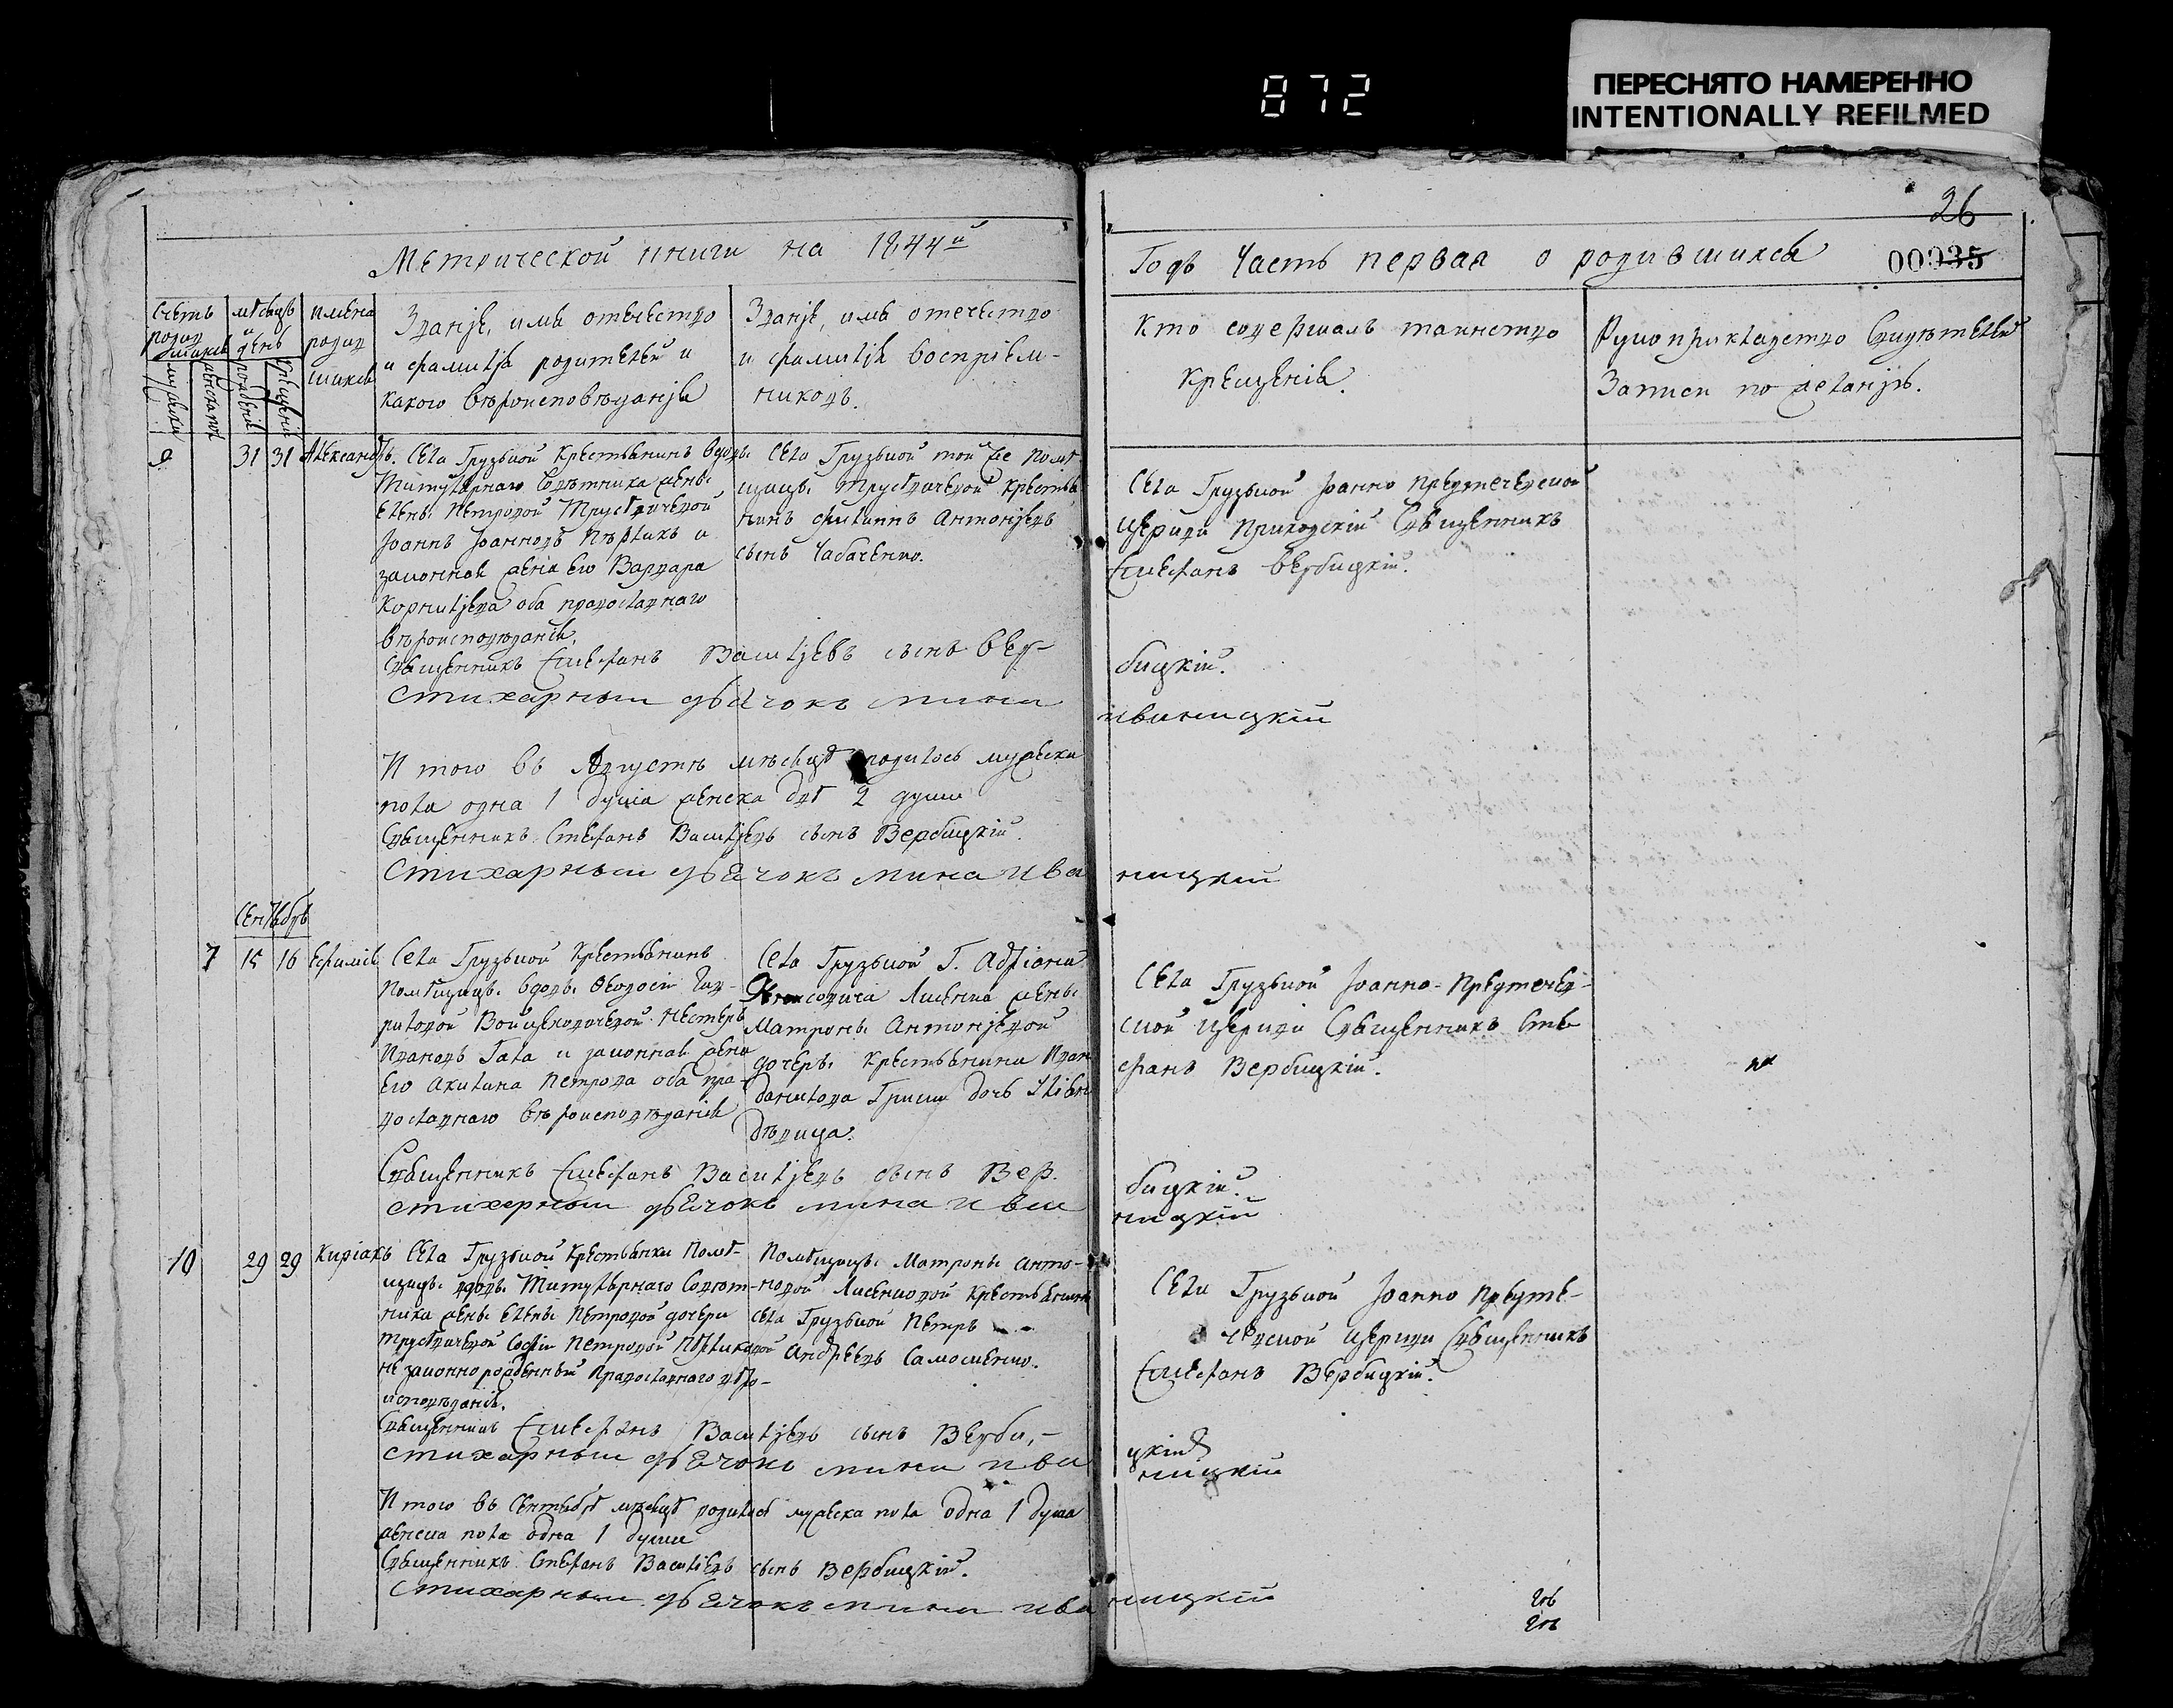 872
ПЕРЕСНЯТО НАМЕРЕННО
INTENTIONALLY REFILMED
26
Метрической книги на 1844й
Годъ Часть первая о родившихся
00035
Счетъ родившихся
мѣсяцъ и день
имена родившихся
Званіе, имя отечество
и фамилія родителей и
какого вѣроисповѣданія
Званіе, имя отечество
и фамилія воспріем-
никовъ.
Кто совершалъ таинство
крещенія.
Рукоприкладство свидѣтелей
записи по желанію.
рожденія
крещенія
9 31 31 Александръ.
Села Грузкой крестьянинъ вдовы
Титулярнаго Совѣтника жены
Елены Петровой
Іоаннъ Іоанновъ и
законная жена его Варвара
Корнилјева оба православнаго
вѣроисповѣданія.
Села Грузкой той же помѣ-
щицы крестья
нинъ филиппъ Антонјевъ
сынъ Чабаненко.
Села Грузкой Іоанно предтеческой
церкви приходскій Священникъ
Стефанъ Вербицкій.
Священникъ Стефанъ Василјевъ сынъ Вер-
бицкій.
Стихарный дьячокъ мина
ивиницкій
И того въ Августѣ мѣсяцѣ родилось мужеска
пола одна 1 душа женска двѣ 2 души
Священникъ Стефанъ Василјевъ сынъ Вербицкій.
Стихарный дьячокъ мина иви
ницкій
Сентябрь
7 15 16 Ефимія
Села Грузкой крестьянинъ
помѣщицы вдовы Феодосіи Гав-
риловой Нестеръ
Ивановъ Гала и законная жена
его Акилина Петрова оба пра-
вославнаго вѣроисповѣданія
Села Грузкой Г. Адріана
Лисенка жены
Матроны Антонјевой
дочерь крестьянина Ивана
Данилова дочь
дѣвица.
Села Грузкой Іоанно-Предтечес-
кой церкви Священникъ Сте-
фанъ Вербицкій.
Священникъ Стефанъ Василјевъ сынъ Вер.
бицкій.
стихарный дьячокъ мина иви
ницкій
10 29 29 Киріакъ
Села Грузкой крестьянки помѣ-
щицы вдовы Титулярнаго Совѣт-
ника жены Елены Петровой дочери
Софіи Петровой
незаконнорожденный православнаго вѣро-
исповѣданія.
Помѣщицы Матроны Анто-
новой Лисенковой крестьянинъ
села Грузкой Петръ
Андреевъ Самойленко.
Села Грузкой Іоанно Предте-
ческой церкви Священникъ
Стефанъ Вербицкій.
Священникъ Стефанъ Василјевъ сынъ Верби,-
цкій
стихарный дьячокъ мина иви
ницкій
И того въ Сентябрѣ мѣсяцѣ родилось мужеска пола одна 1 душа
женска пола одна 1 душа
Священникъ Стефанъ Василіевъ сынъ Вербицкій.
Стихарный дьячокъ мина иви
ницкій